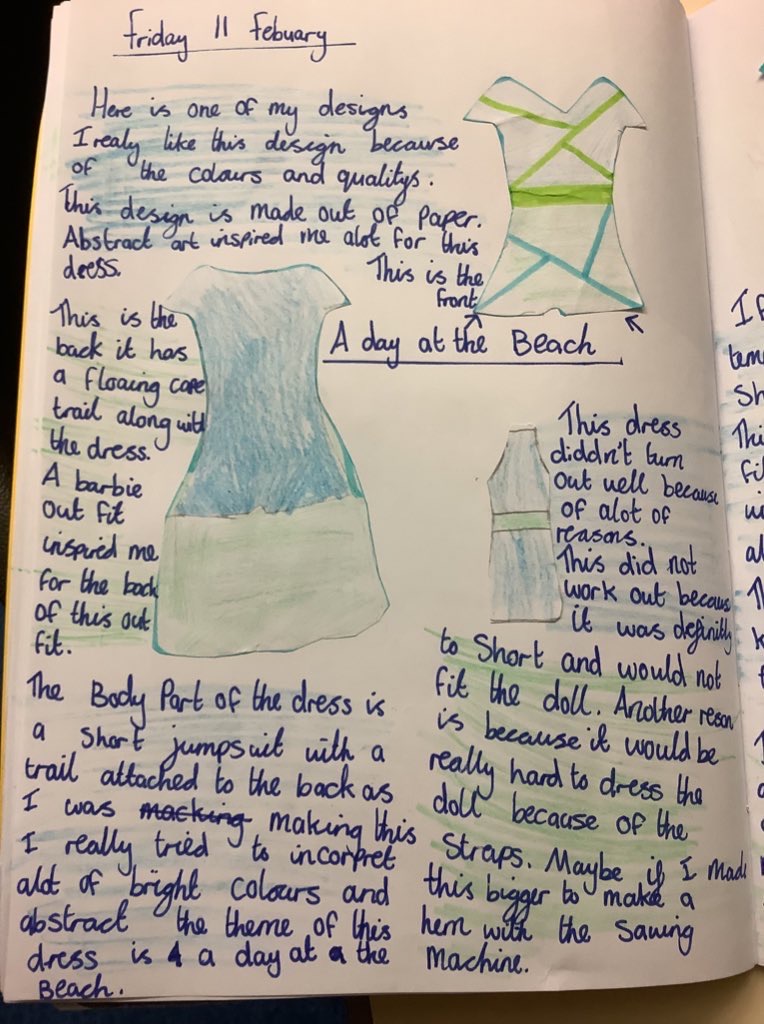 Friday 11 Febuary
Here is one of my designs
I realy like this design because
of the colours and qualitys.
This design is made out of paper.
Abstract art inspired me alot for this
dress.
This is the
front
A day at the Beach
This is the
back it has
a floaing cape
trail along with
the dress.
A barbie
out fit
inspired me
for the back
of this out
fit.
The Body Part of the dress is
a short jumpsuit with a
trail attached to the back as
I was macking making this
I really tried to incorpret
alot of bright colours and
abstract the theme of this
dress is a day at the
Beach.
This dress
diddn't turn
out well because
of alot of
reasons.
This did not
work out because
it was definitly
to Short and would not
fit the doll. Another reson
is because it would be
really hard to dress the
doll because of the
Straps. Maybe if I made
this bigger to make a
hem with the Sawing
Machine.